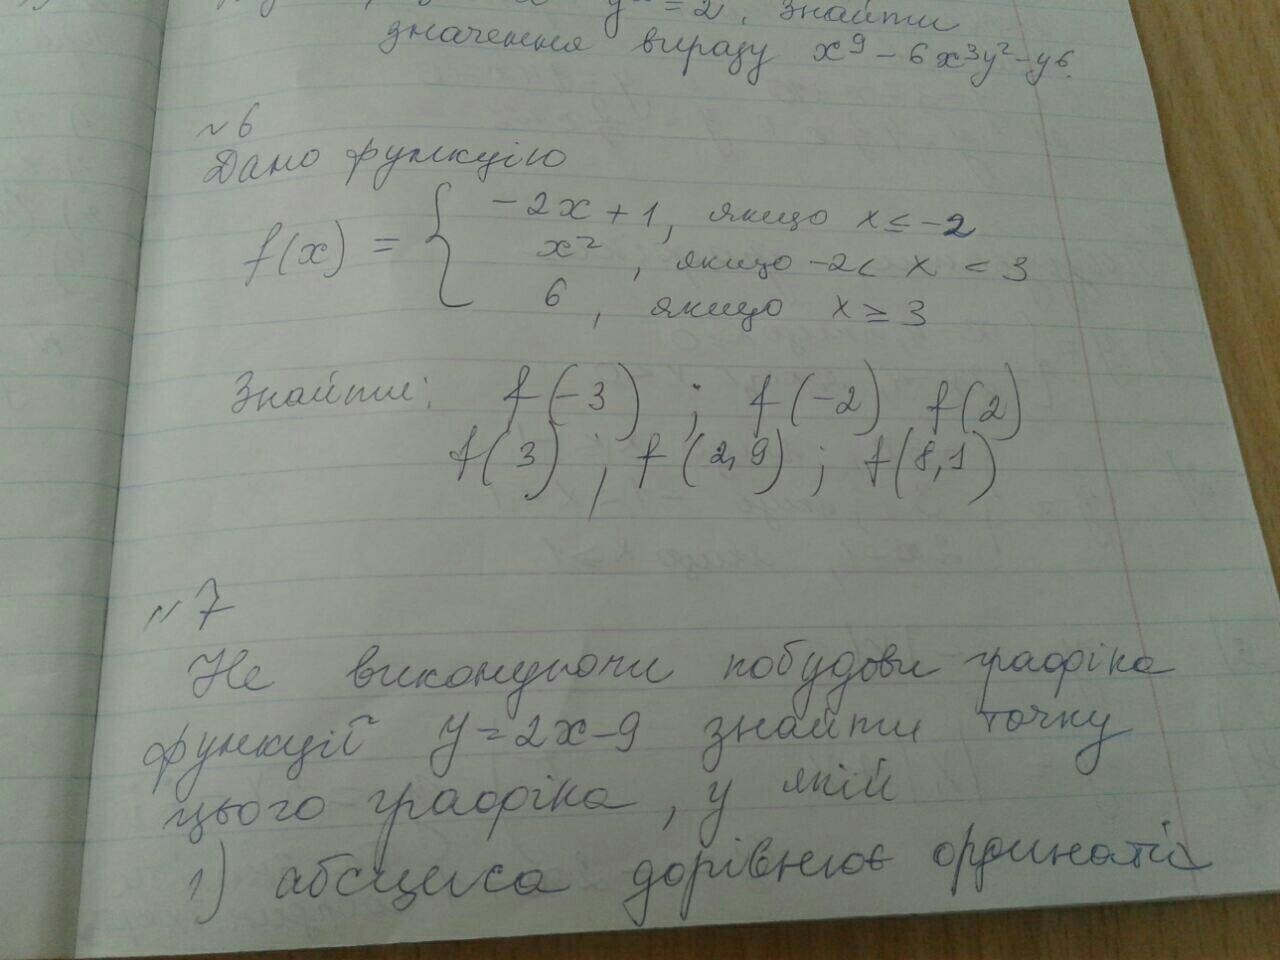 y = 2. Знайти
значення виразу x⁹ - 6x³y² - y⁶.
№6
Дано функцію
f(x) = { -2x + 1, якщо x ≤ -2
x², якщо -2 < x < 3
6, якщо x ≥ 3
Знайти: f(-3) ; f(-2) f(2)
f(3) , f(2,9) ; f(8,1)
№7
Не виконуючи побудови графіка
функції y = 2x - 9 знайти точку
цього графіка, у якій
1) абсциса дорівнює ординаті